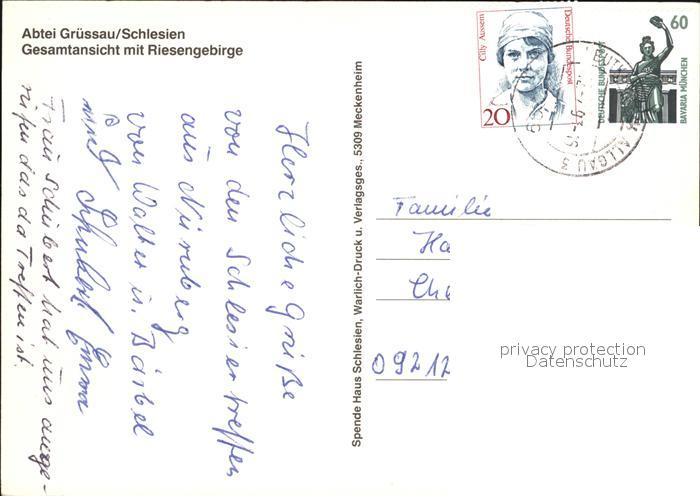 Abtei Grüssau/Schlesien
Gesamtansicht mit Riesengebirge
Herzliche Grüße
von den Schlesiertreffen
aus Nürnberg
von Walter u. Bärbel
Schubert Emma
Frau Schubert hat uns ange-
rufen das da Treffen ist.
Spende Haus Schlesien, Warlich-Druck u. Verlagsges., 5309 Meckenheim
Cilly Aussem
Deutsche Bundespost
20
60
DEUTSCHE BUNDESPOST
BAVARIA MÜNCHEN
ALLGÄU 3
Familie
Ha
Ch
09212
privacy protection
Datenschutz